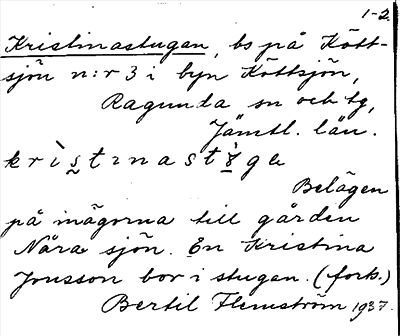 1-2.
Kristinastugan, bs på Kött-
sjön n:r 3 i byn Köttsjön,
Ragunda sn och tg,
Jämtl. län.
Belägen
på mägorna till gården
Nära sjön. En Kristina
Jonsson bor i stugan. (forts.)
Bertil Flemström 1937.